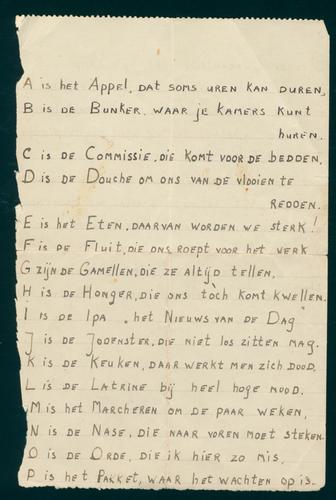 A is het Appel, dat soms uren kan duren,
B is de Bunker, waar je kamers kunt
huren.
C is de Commissie, die komt voor de bedden,
D is de Douche om ons van de vlooien te
redden.
E is het Eten, daarvan worden we sterk!
F is de Fluit, die ons roept voor het werk
G zijn de Gamellen, die ze altijd tellen,
H is de Honger, die ons tòch komt kwellen.
I is de Ipa, het Nieuws van de Dag
J is de Jodenster, die niet los zitten mag.
K is de Keuken, daar werkt men zich dood.
L is de Latrine bij heel hoge nood.
M is het Marcheren om de paar weken,
N is de Nase, die naar voren moet steken.
O is de Orde, die ik hier zo mis,
P is het Pakket, waar het wachten op is-